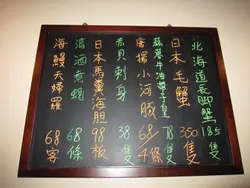 北海道長脚蟹 185隻
日本毛蟹 350隻
蒜蓉牛油帶子皇 78隻
唐揚小河豚 68條
赤貝刺身 38隻
日本馬糞海胆 98板
清酒煮蜆 68條
海鰻天婦羅 68客